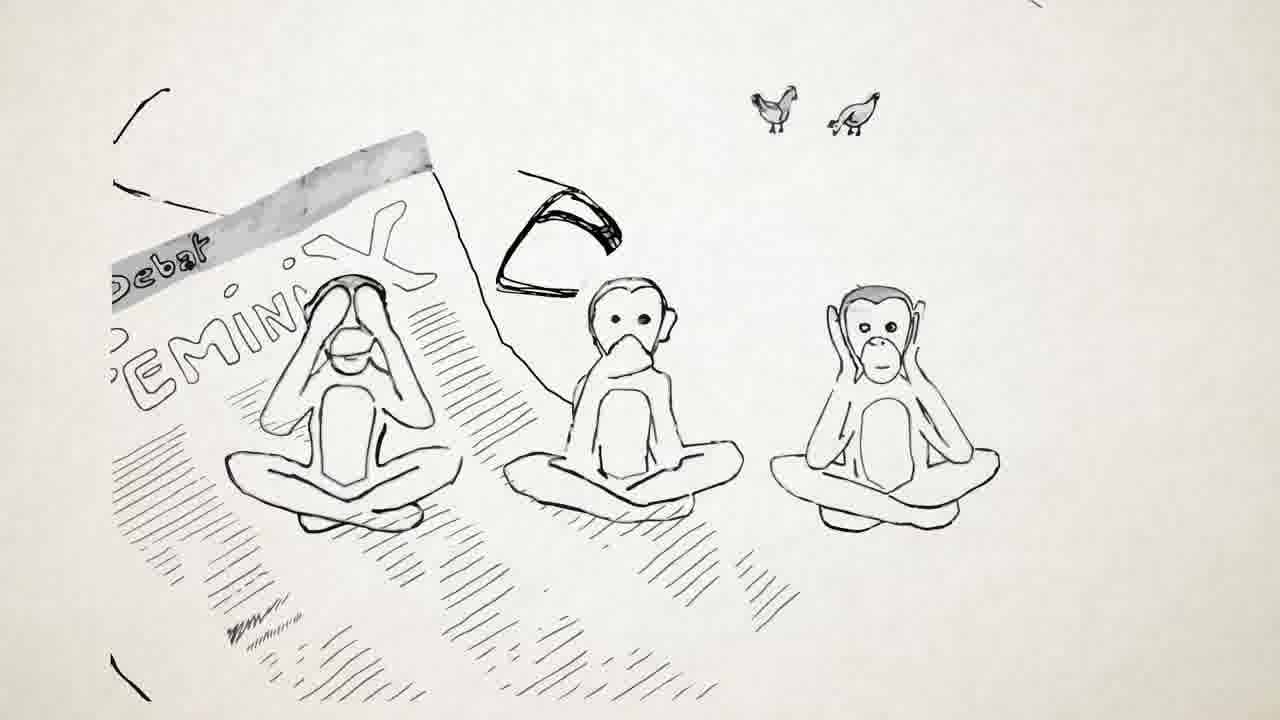 Debat
FEMiNiX